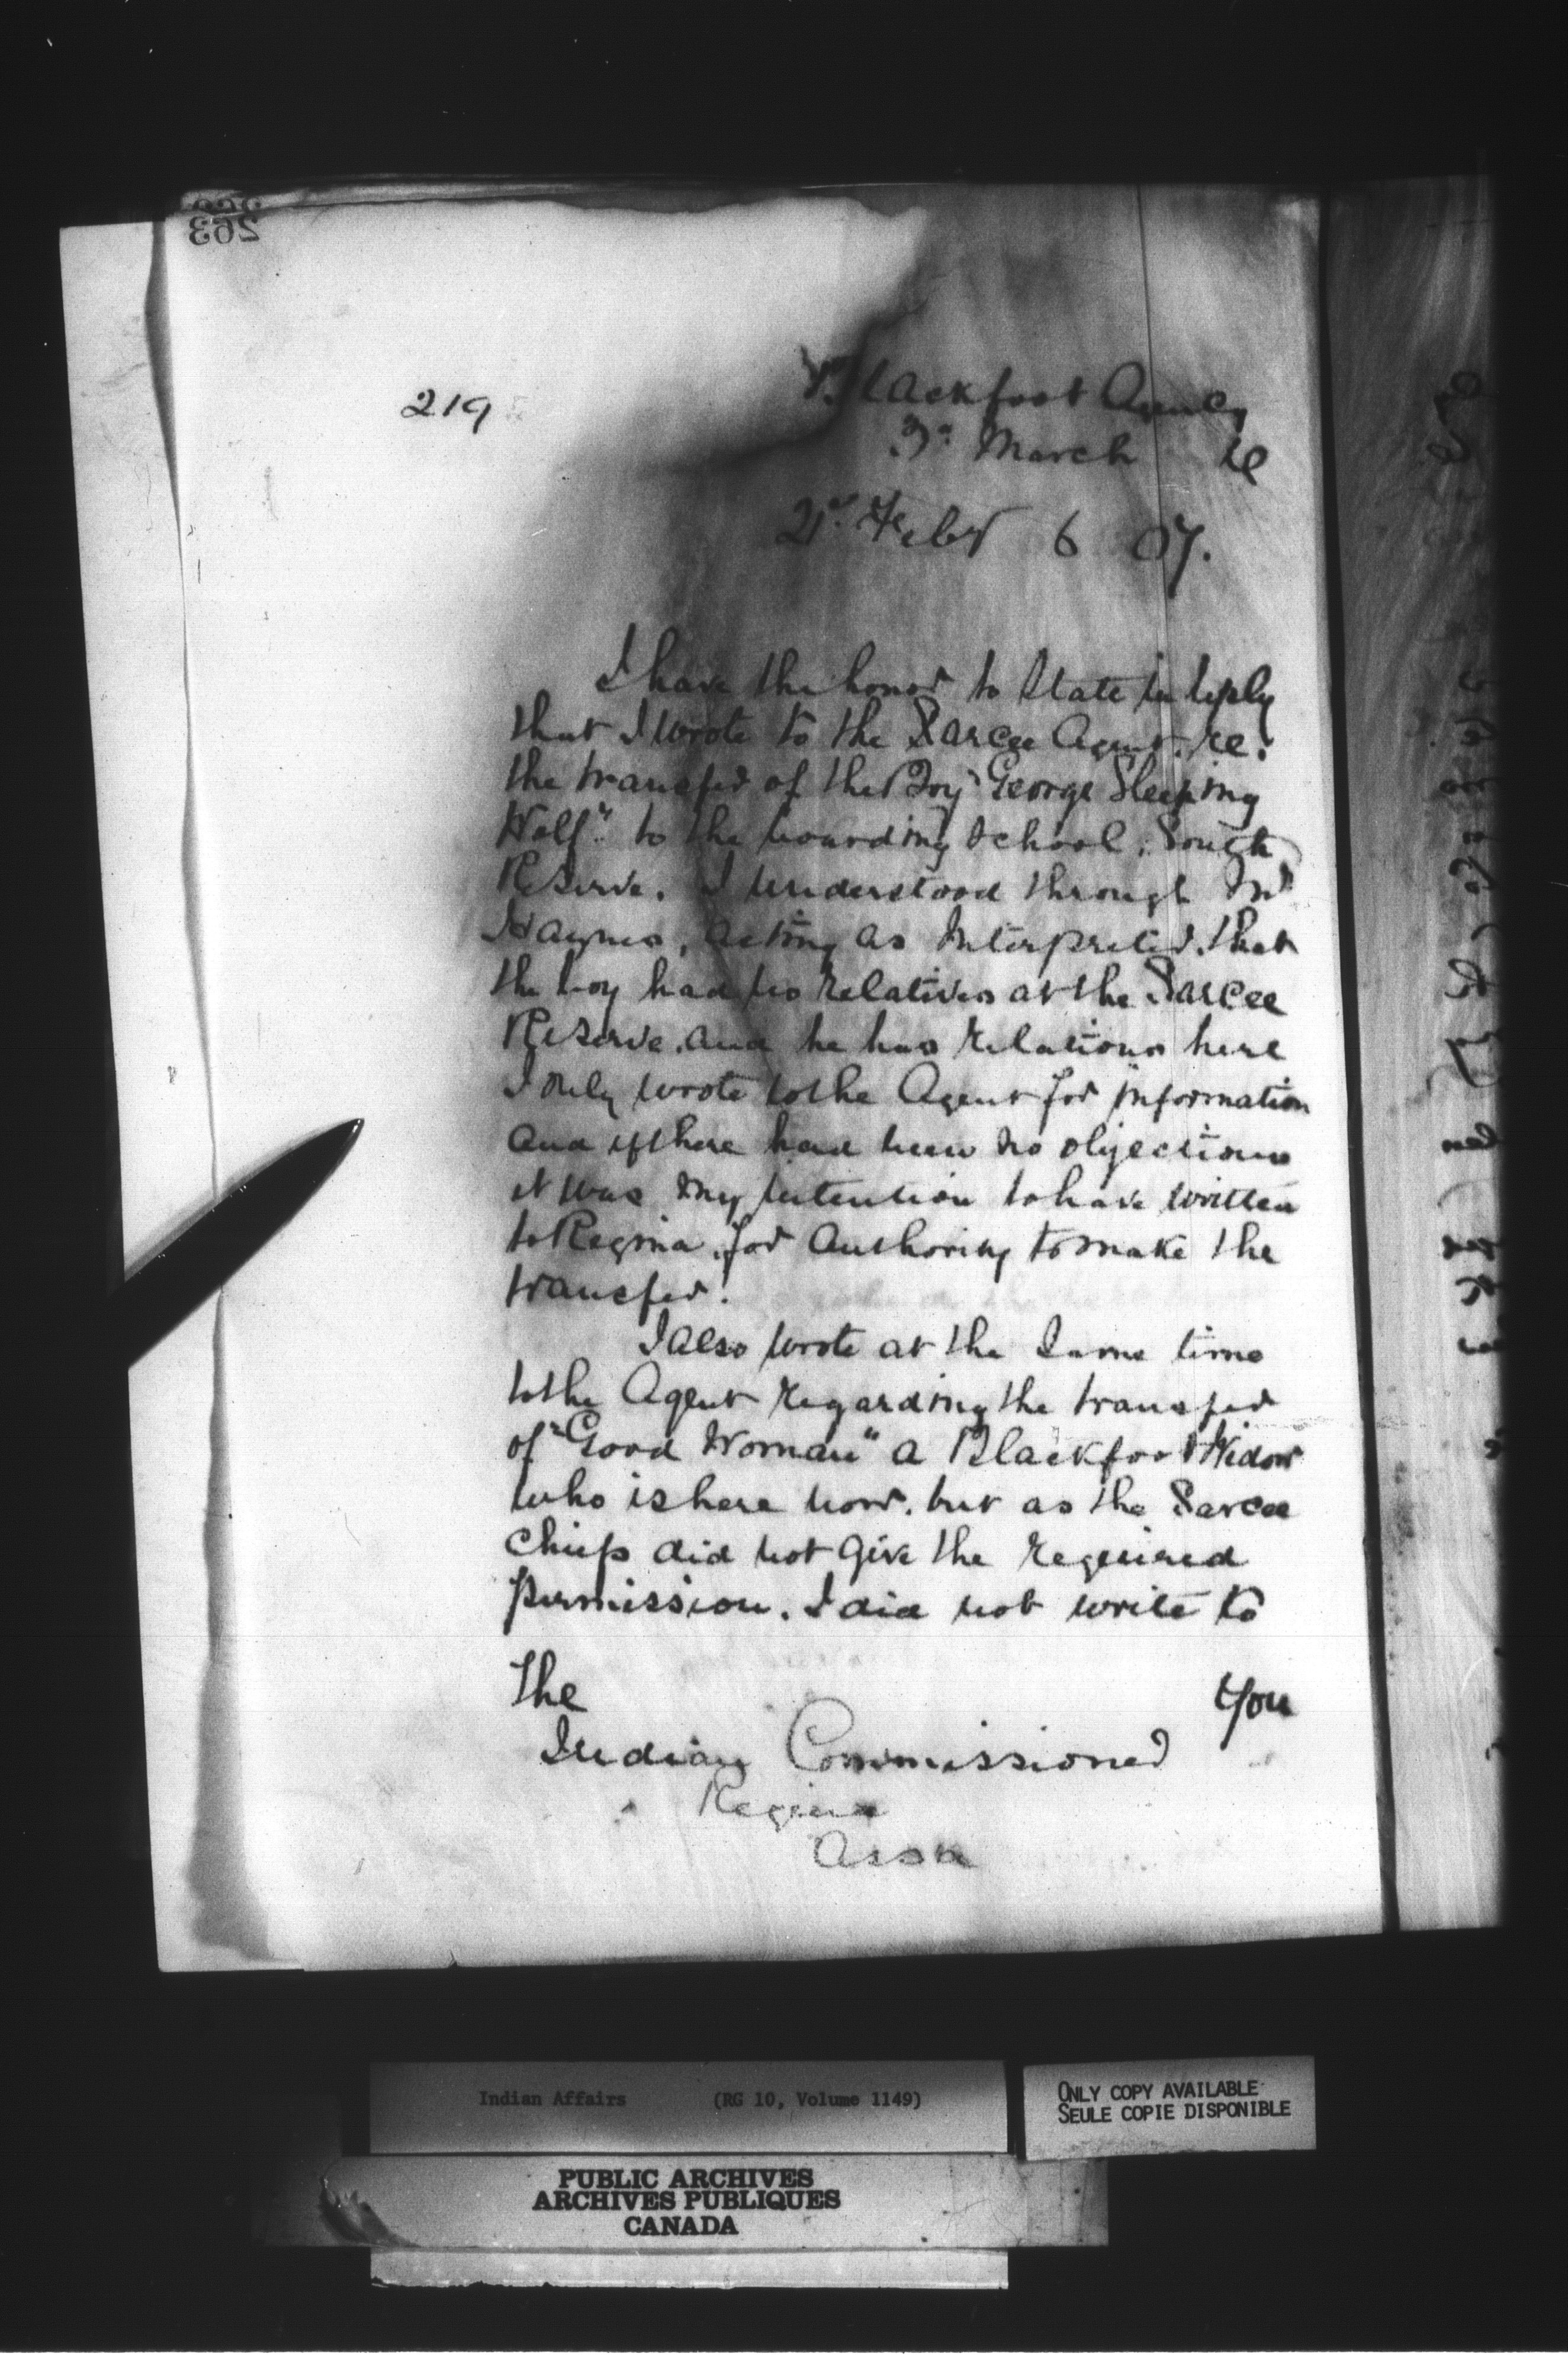 263
219
Blackfoot Agency
March
21st Feby 6 07.
I have the honor to State in reply
that I wrote to the Sarcee Agent. re.
the transfer of the Boy "George Sleeping
Wolf" to the boarding School, South
Reserve. I understood through Mr
Haynes, acting as Interpreter. that
the boy had no relatives at the Sarcee
Reserve. and he has relations here
I only wrote to the Agent for information
and if there had been no objections
it was my intention to have written
to Regina, for Authority to make the
transfer.
I also wrote at the Same time
to the Agent regarding the transfer
of "Good Woman" a Blackfoot Widow
who is here now. but as the Sarcee
Chiefs did not give the required
permission. I did not write to
you
The
Indian Commissioner
Regina
Assa
Indian Affairs (RG 10, Volume 1149)
ONLY COPY AVAILABLE
SEULE COPIE DISPONIBLE
PUBLIC ARCHIVES
ARCHIVES PUBLIQUES
CANADA